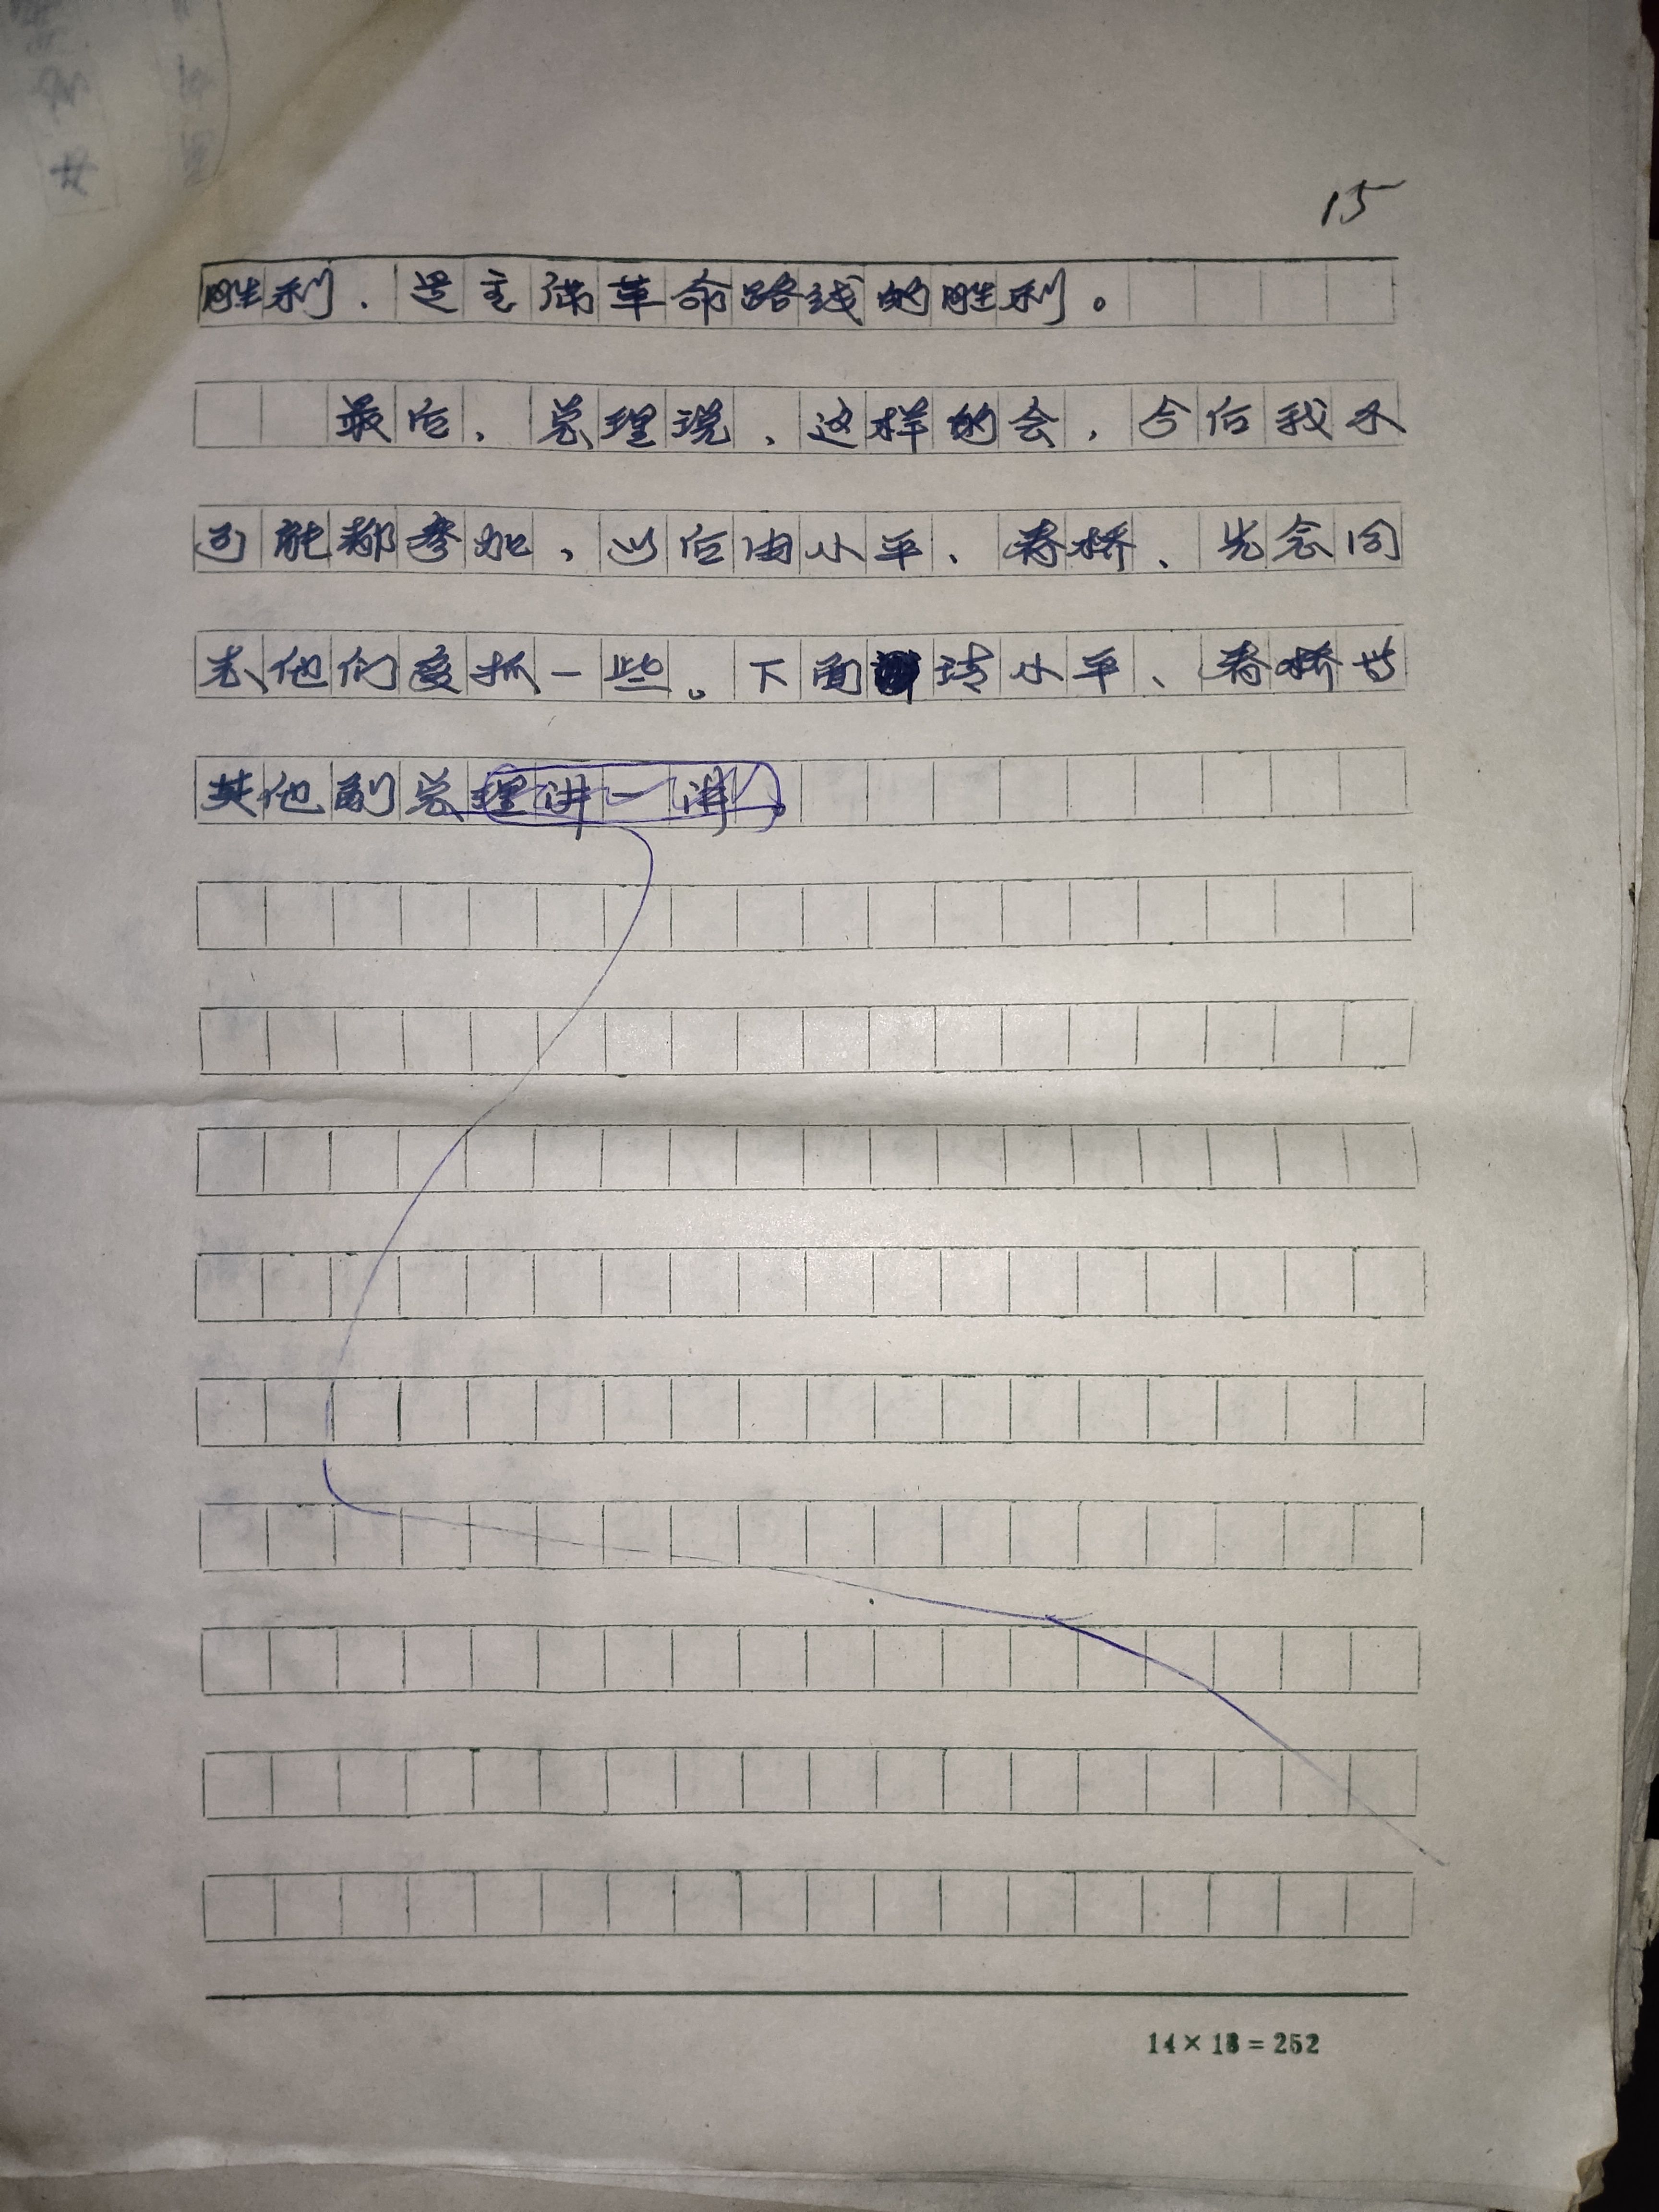 15
胜利、是主席革命路线的胜利。
最后，总理说，这样的会，今后我不
可能都参加，以后由小平、春桥、先念同
志他们多抓一些。下面请小平、春桥等
其他副总理讲一讲
14×18=252